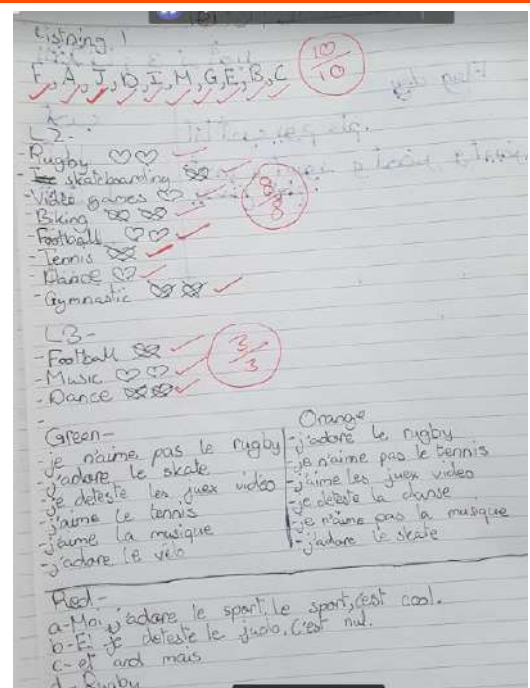 Listning 1
F, A, J, D, I, M, G, E, B, C
10/10
L2-
- Rugby
- skateboarding
- Video games
- Biking
- Football
- Tennis
- Dance
- Gymnastic
8/8
L3-
- Football
- Music
- Dance
3/3
-
Green-
- je n'aime pas le rugby
- j'adore le skate
- je deteste les juex vidéo
- j'aime le tennis
- j'aime la musique
- j'adore le vélo
Orange
- j'adore le rugby
- je n'aime pas le tennis
- j'aime les juex video
- je deteste la danse
- je n'aime pas la musique
- j'adore le skate
Red-
a- Moi, j'adore le sport, le sport, c'est cool.
b- Et je deteste le judo, C'est nul.
c- et and mais
d- Rugby